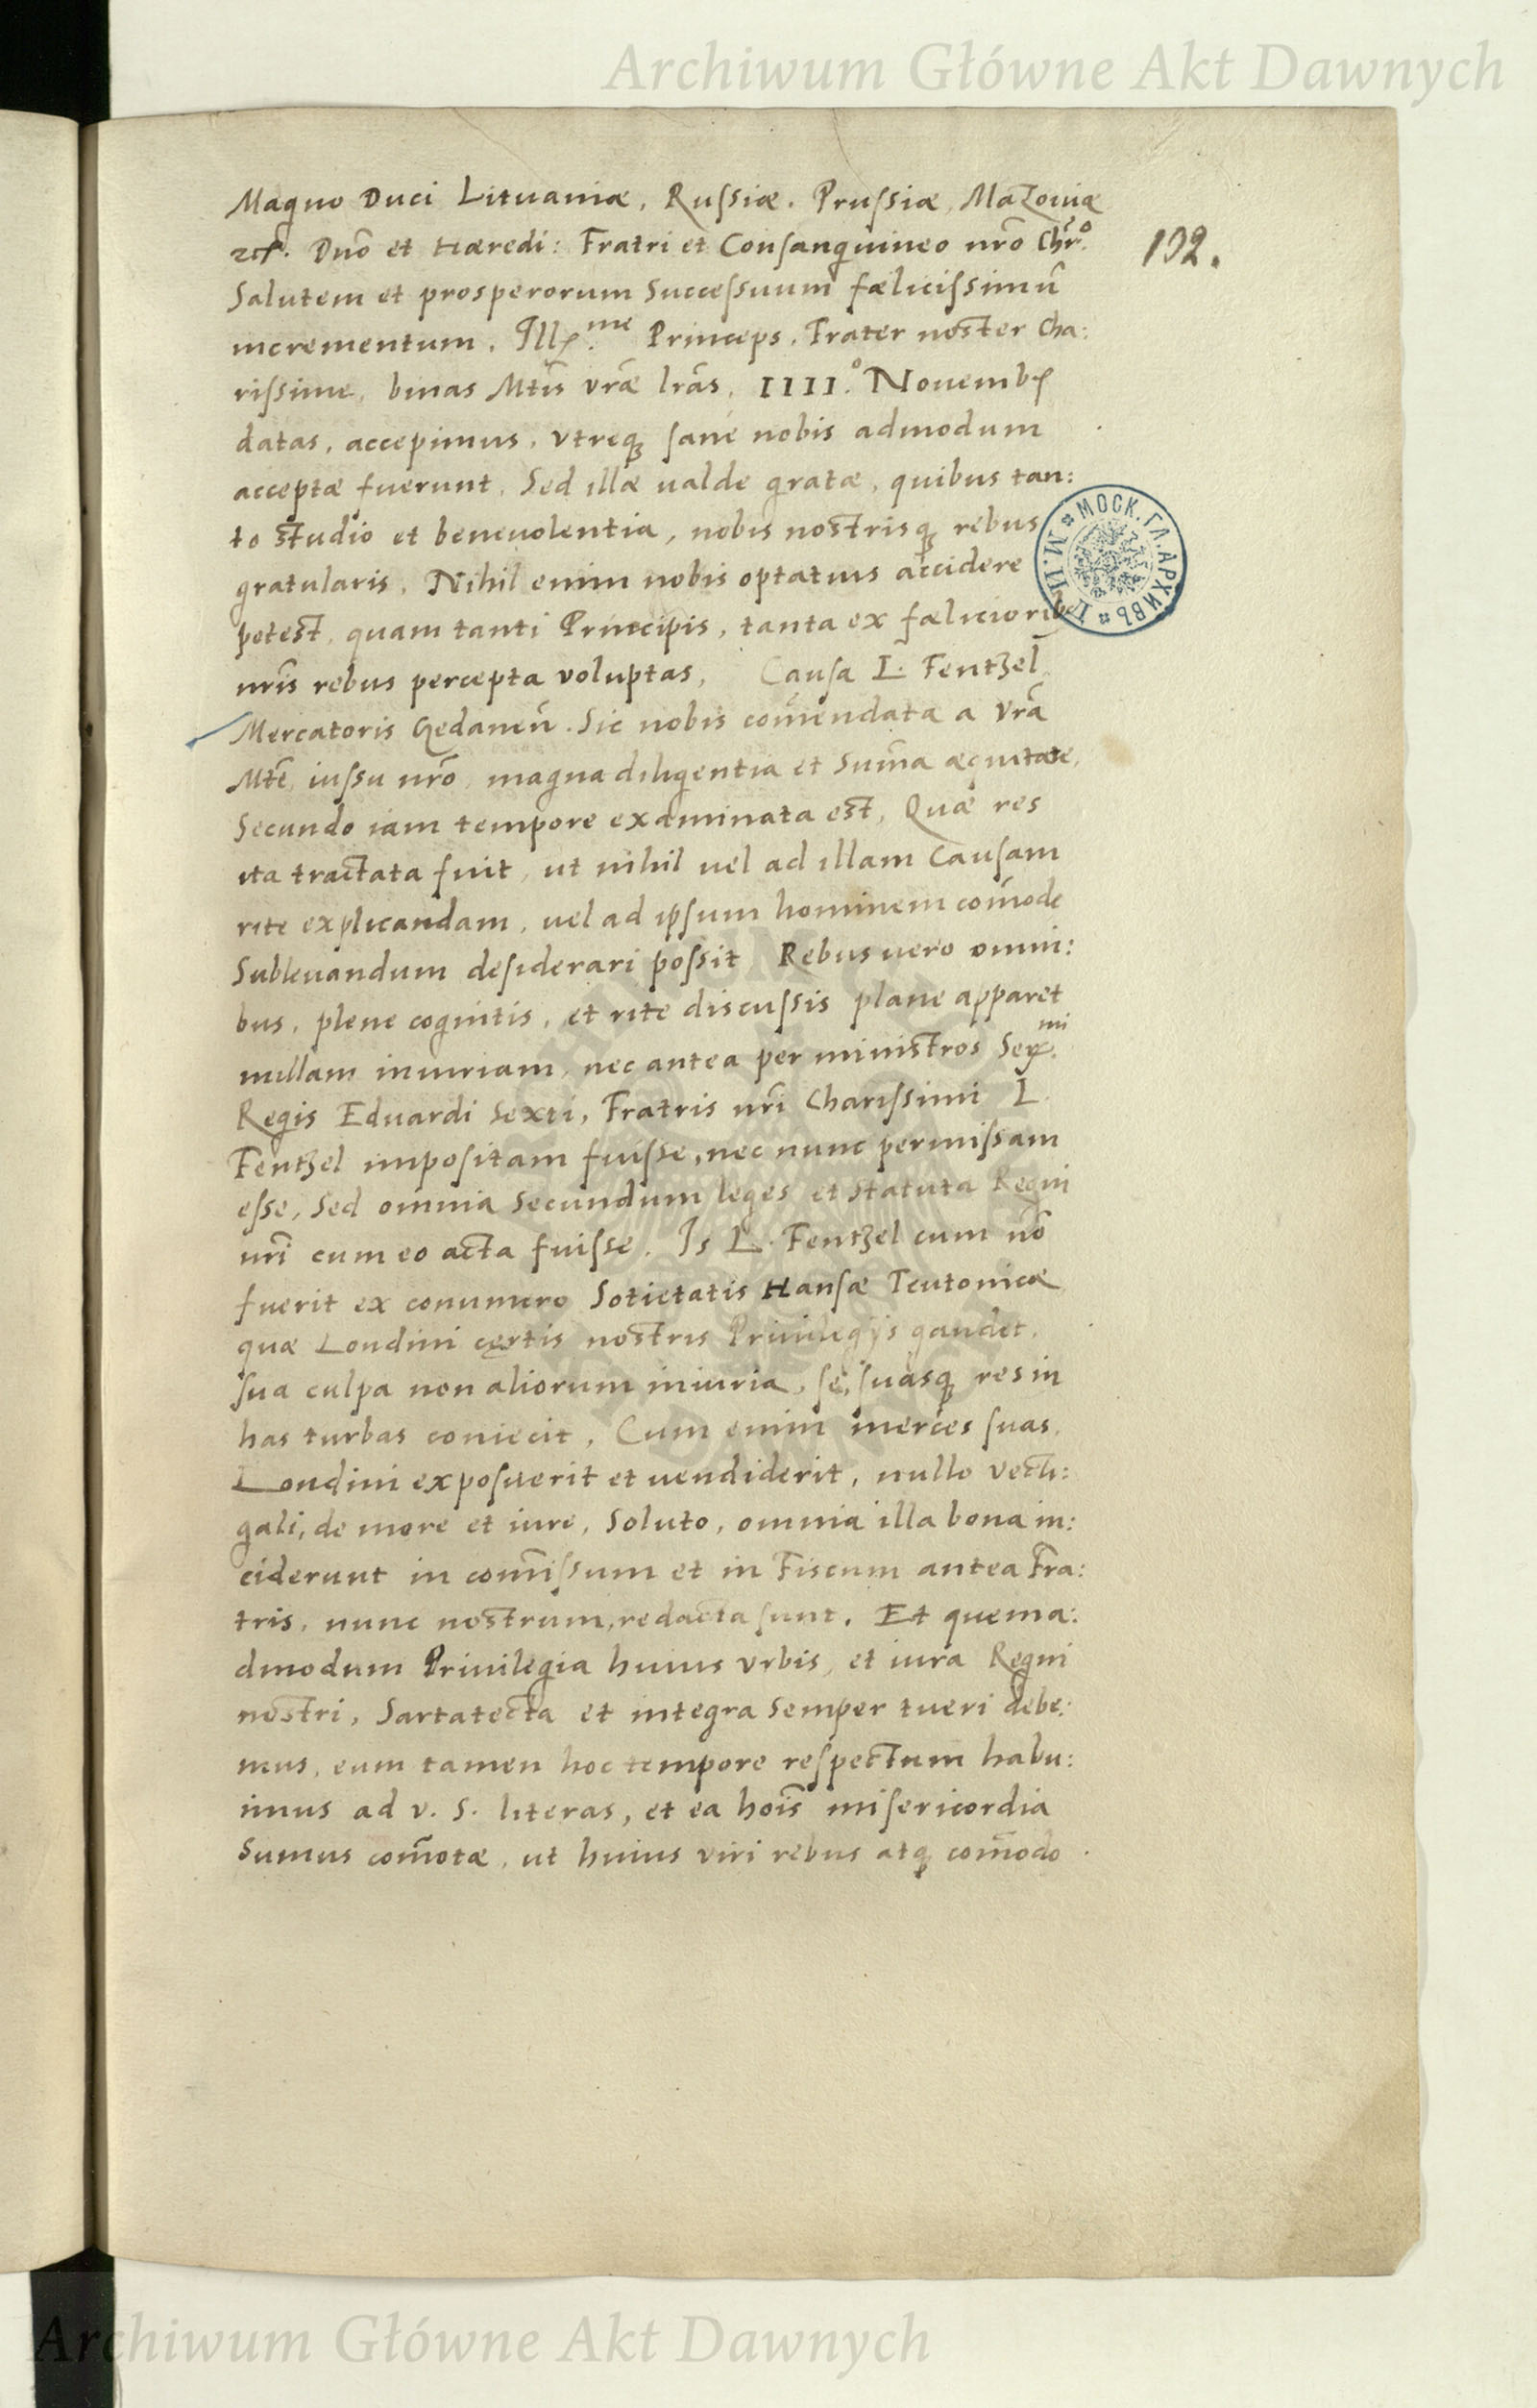 Archiwum Główne Akt Dawnych
Magno Duci Lituaniæ, Russiæ. Prussiæ, Mazoviæ
Dnō et Hæredi: Fratri et Consanguineo nrō Chrō.
132.
Salutem et prosperorum Successuum fælicissimū
incrementum. Illme Princeps. Frater noster Cha:
rissime, binas Mtis vrāe lrās, IIII.º Novemb
datas, accepimus, vtreqȝ sanè nobis admodum
acceptæ fuerunt, Sed illæ valde gratæ, quibus tan:
to studio et benevolentia, nobis nostrisqȝ rebus
gratularis, Nihil enim nobis optatius accidere
potest, quam tanti Principis, tanta ex fælicioribȝ
nrīs rebus percepta voluptas, Causa L. Fentzel
Mercatoris Gedaneñ. Sic nobis com̄endata a Vrā
Mtē, iussu nrō, magna diligentia et sum̄a æquitate,
Secundo iam tempore examinata est, Quæ res
ita tractata fuit, ut nihil vel ad illam causam
rite explicandam, vel ad ipsum hominem com̄ode
Sublevandum desiderari possit Rebus vero omni:
bus, plene cognitis, et rite discussis plane apparet
nullam iniuriam, nec antea per ministros Sermi.
Regis Eduardi Sexti, Fratris nrī Charissimi L.
Fentzel impositam fuisse, nec nunc permissam
esse, Sed omnia Secundum leges et Statuta Regni
nrī cum eo acta fuisse. Is L. Fentzel cum nō
fuerit ex conumero Sotietatis Hansæ Teutonicæ
quæ Londini certis nostris Privilegijs gaudet,
sua culpa non aliorum iniuria, se, suasqȝ res in
has turbas coniecit, Cum enim merces suas,
Londini exposuerit et vendiderit, nullo vecti:
gali, de more et iure, Soluto, omnia illa bona in:
ciderunt in com̄issum et in Fiscum antea Fra:
tris, nunc nostrum, redacta sunt. Et quema:
dmodum Privilegia huius vrbis, et iura Regni
nostri, Sartatecta et integra Semper tueri debe:
mus, eum tamen hoc tempore respectum habu:
imus ad v. S. literas, et ea hoīs misericordia
Sumus com̄otæ, ut huius viri rebus atqȝ com̄odo
МОСК. ГЛ. АРХИВЪ М. И. Д.
Archiwum Główne Akt Dawnych